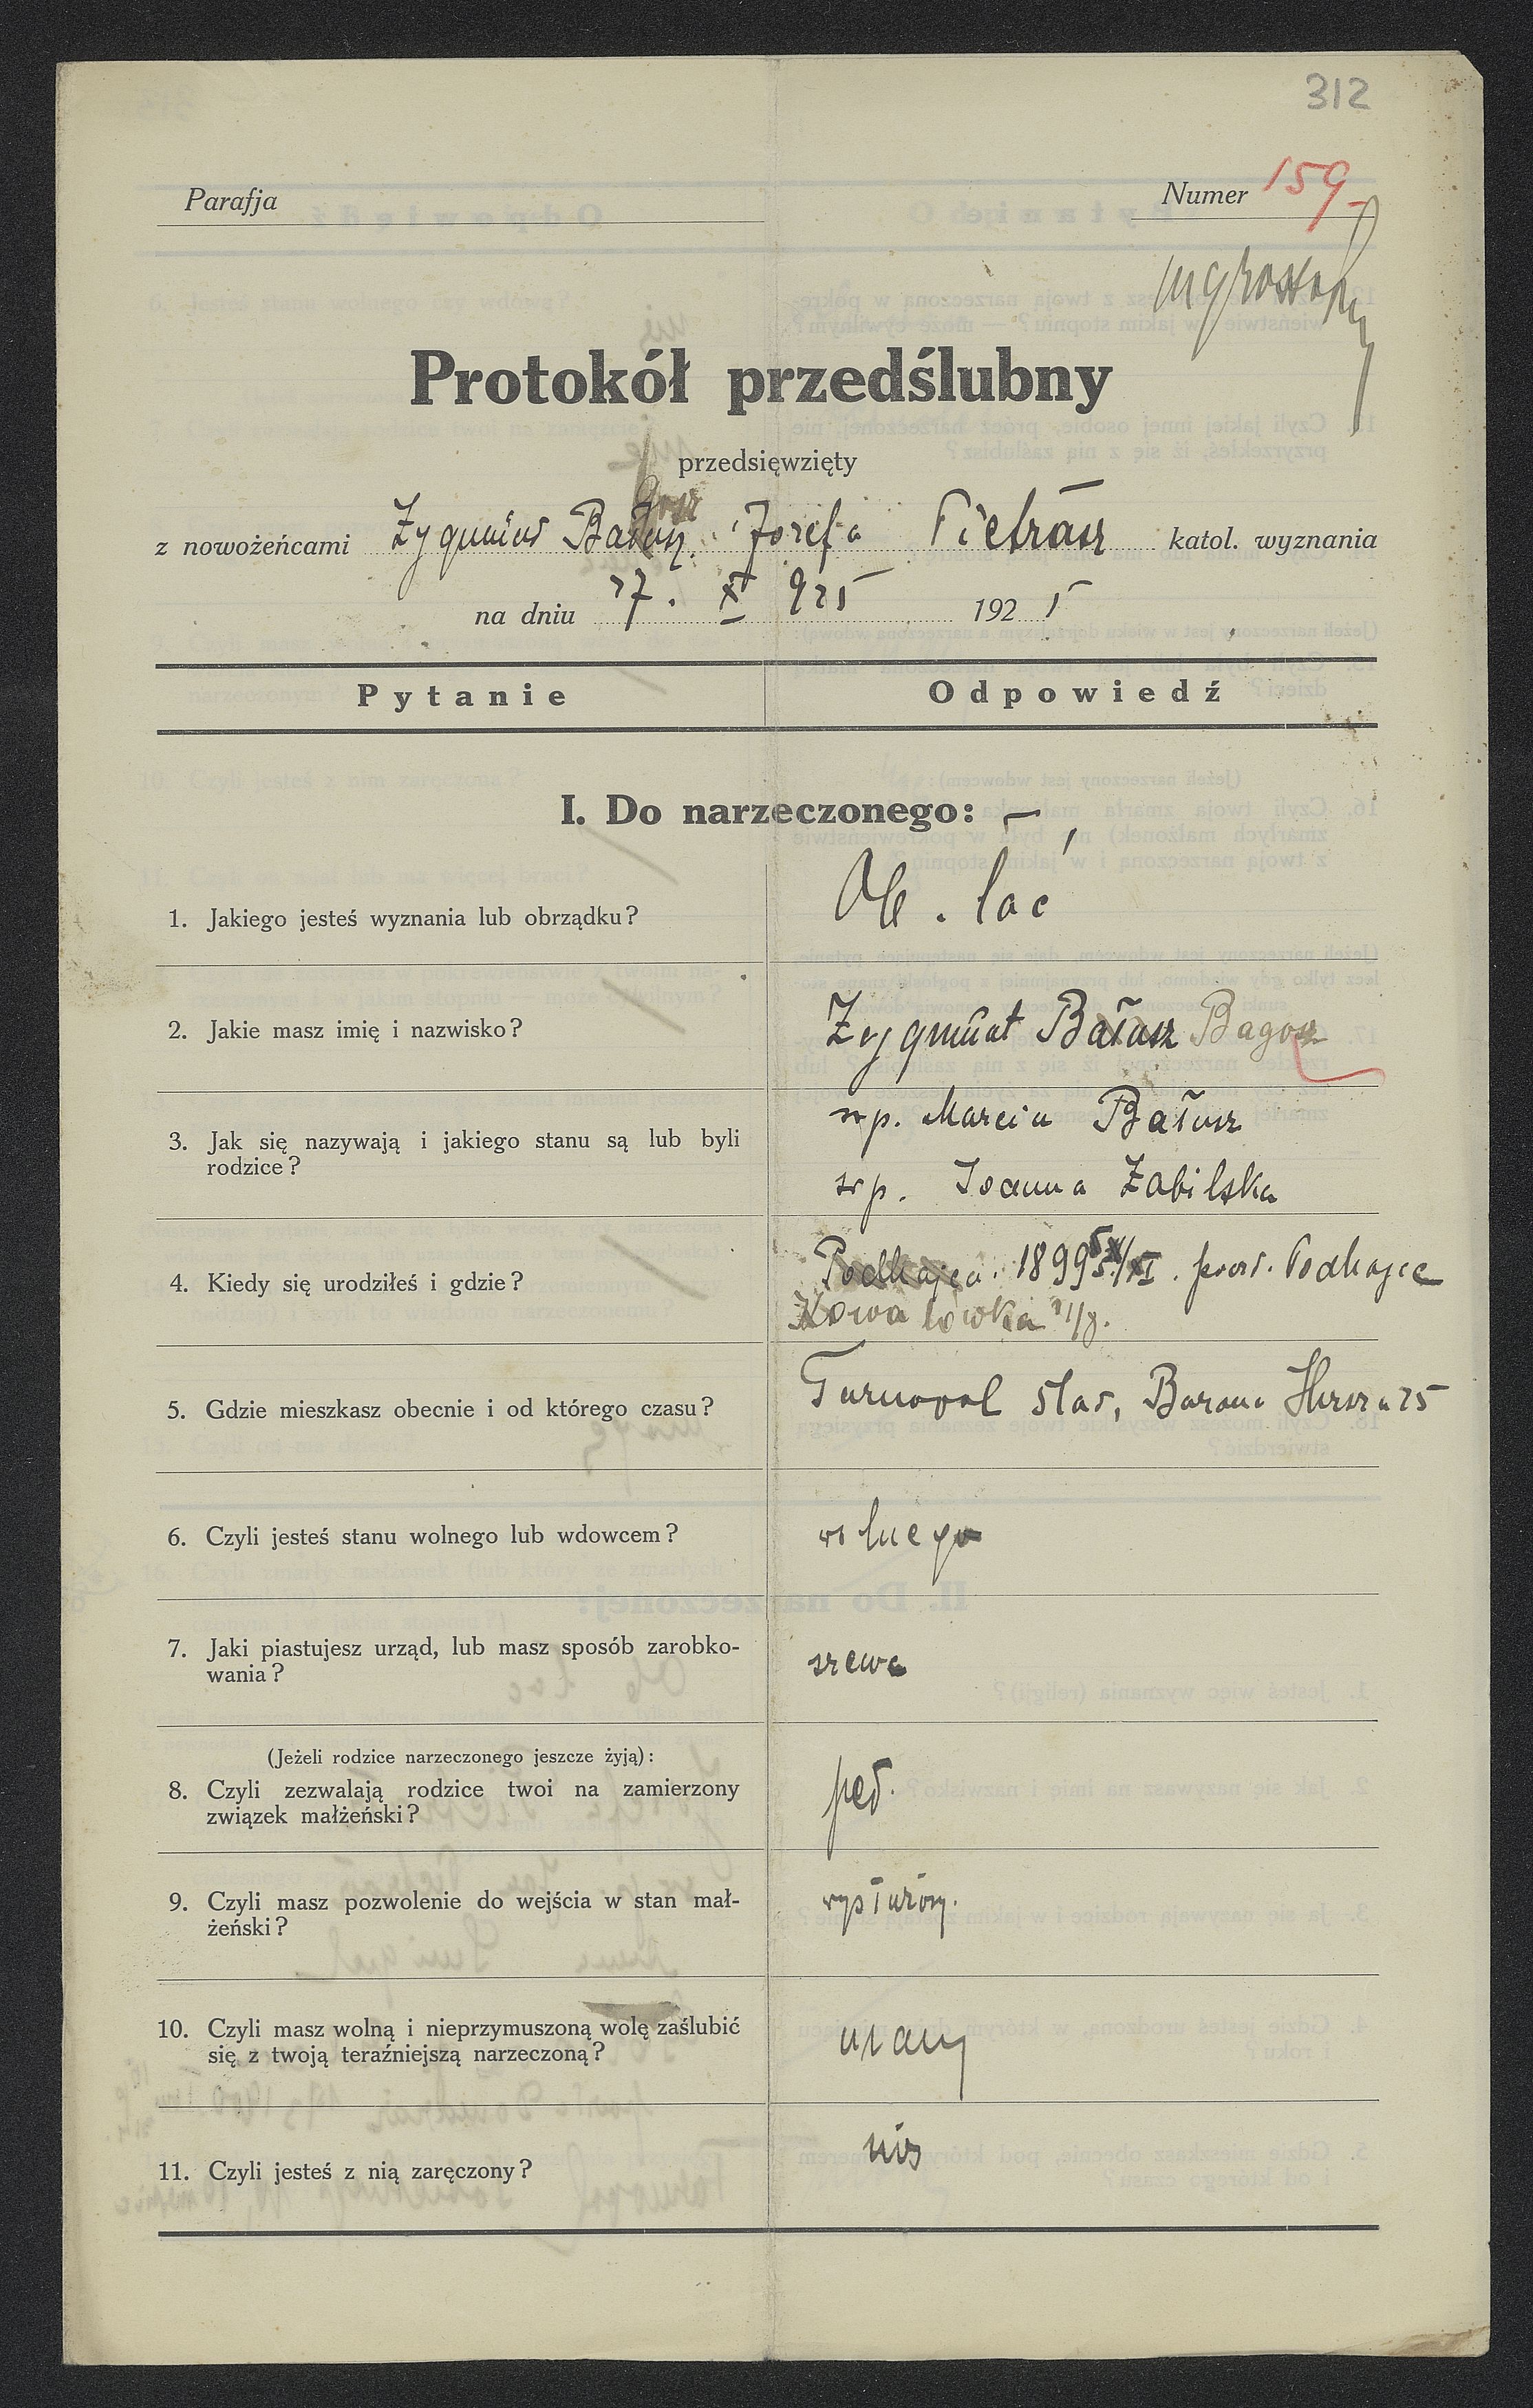 312
Parafja
Numer 159
Protokół przedślubny
przedsięwzięty
z nowożeńcami Zygmunt Bałusz i Józefa Pietrasz katol. wyznania
na dniu 27. X 925 1925
Pytanie Odpowiedź
I. Do narzeczonego:
1. Jakiego jesteś wyznania lub obrządku? Ob. łać
2. Jakie masz imię i nazwisko? Zygmunt Bałusz Bagosz
3. Jak się nazywają i jakiego stanu są lub byli rodzice? śp. Marcin Bałusz
śp. Joanna Zabilska
4. Kiedy się urodziłeś i gdzie? Podhajca. 1899 pow. Podhajce
Kowalówka 21/8.
5. Gdzie mieszkasz obecnie i od którego czasu? Tarnopol Bar. Hirsza 25
6. Czyli jesteś stanu wolnego lub wdowcem? wolnego
7. Jaki piastujesz urząd, lub masz sposób zarobko-
wania? szewc
(Jeżeli rodzice narzeczonego jeszcze żyją):
8. Czyli zezwalają rodzice twoi na zamierzony
związek małżeński?
9. Czyli masz pozwolenie do wejścia w stan mał-
żeński? wysłużony.
10. Czyli masz wolną i nieprzymuszoną wolę zaślubić
się z twoją teraźniejszą narzeczoną? mam
11. Czyli jesteś z nią zaręczony? nie